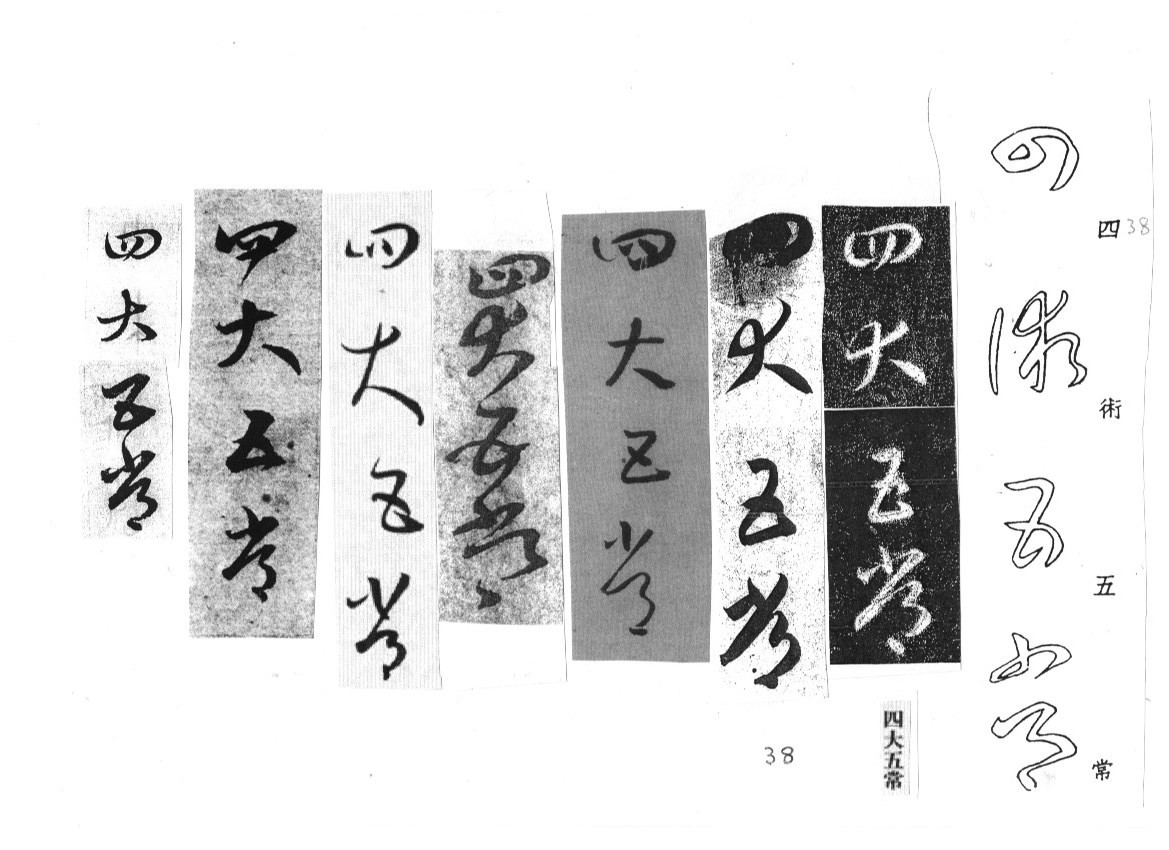 四 38
術
五
常
四術五常
四大五常
四大五常
四大五常
四大五常
四大五常
四大五常
四大五常
四大五常
38